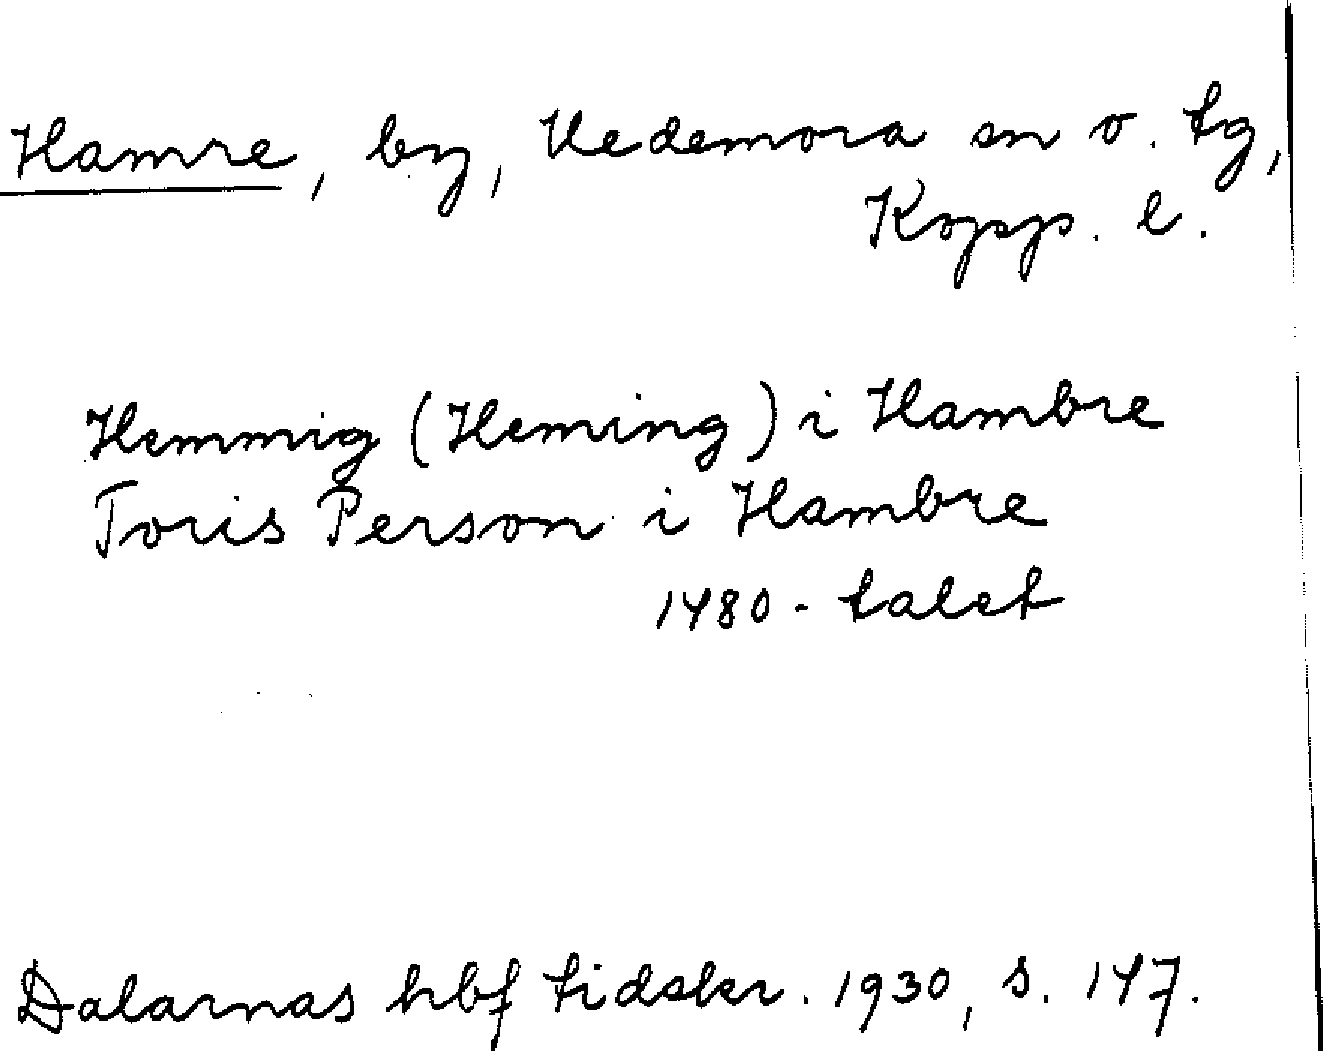 Hamre, by, Vedemora sn o. tg,
Kopp. l.
Hemmig (Heming) i Hambre
Toris Person i Hambre
1480-talet
Dalarnas hbf tidskr. 1930, s. 147.